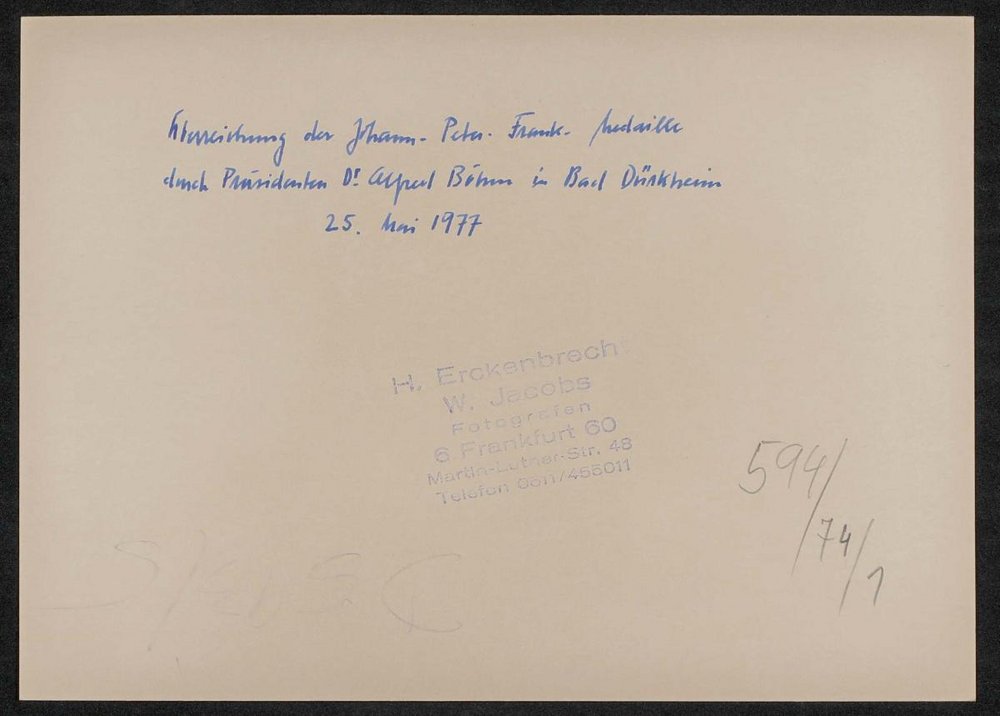 Überreichung der Johann-Peter-Frank-Medaille
durch Präsidenten Dr Alfred Böhm in Bad Dürkheim
25. Mai 1977
H. Erckenbrecht
W. Jacobs
Fotografen
6 Frankfurt 60
Martin-Luther-Str. 48
Telefon 0611/455011
594/
/74/
1